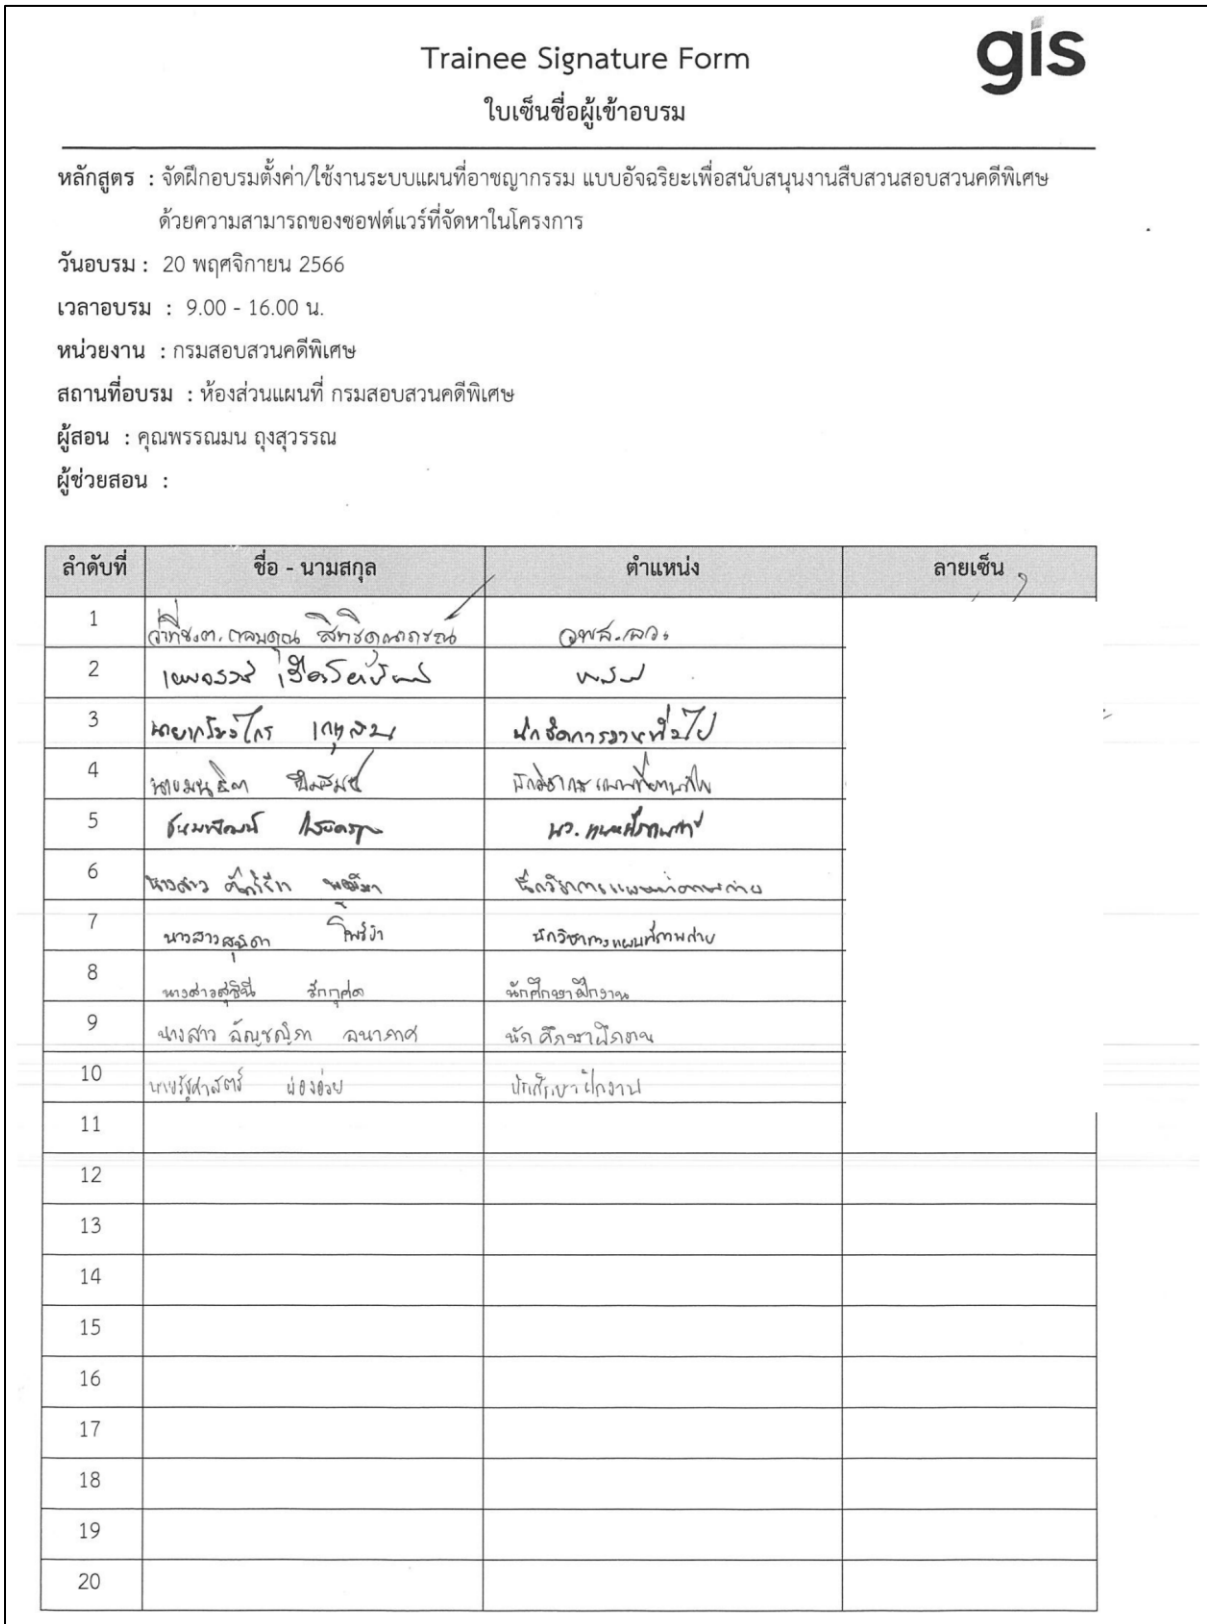 gis
Trainee Signature Form
ใบเซ็นชื่อผู้เข้าอบรม
หลักสูตร : จัดฝึกอบรมตั้งค่า/ใช้งานระบบแผนที่อาชญากรรม แบบอัจฉริยะเพื่อสนับสนุนงานสืบสวนสอบสวนคดีพิเศษ
ด้วยความสามารถของซอฟต์แวร์ที่จัดหาในโครงการ
วันอบรม : 20 พฤศจิกายน 2566
เวลาอบรม : 9.00 - 16.00 น.
หน่วยงาน : กรมสอบสวนคดีพิเศษ
สถานที่อบรม : ห้องส่วนแผนที่ กรมสอบสวนคดีพิเศษ
ผู้สอน : คุณพรรณมน ถุงสุวรรณ
ผู้ช่วยสอน :
ลำดับที่ ชื่อ - นามสกุล ตำแหน่ง ลายเซ็น
1 ว่าที่
2
3 นายเกรียงไกร นักจัดการงานทั่วไป
4 นักวิชาการแผนที่ภาพถ่าย
5
6 นางสาว นักวิชาการแผนที่ภาพถ่าย
7 นางสาวสุนิดา นักวิชาการแผนที่ภาพถ่าย
8 นางสาวสุชินี รักกุศล นักศึกษาฝึกงาน
9 นางสาว นักศึกษาฝึกงาน
10 นายรัฐศาสตร์ น่องอ่วย นักศึกษาฝึกงาน
11
12
13
14
15
16
17
18
19
20